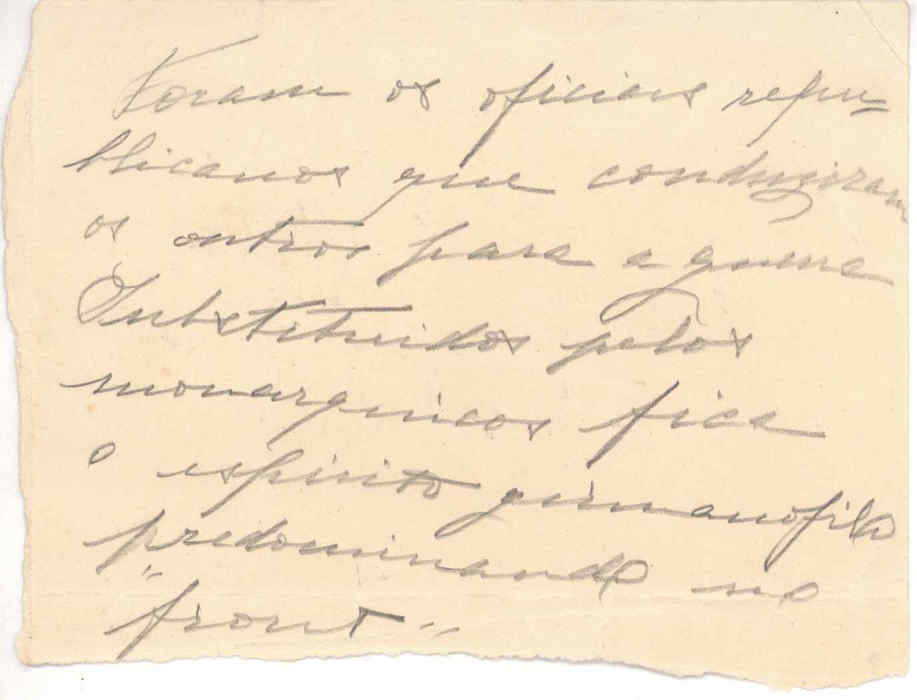 Foram os oficiais repu-
blicanos que conduziram
os outros para a guerra
Substituidos pelos
monarquicos fica
o espirito germanofilo
predominando no
"front"